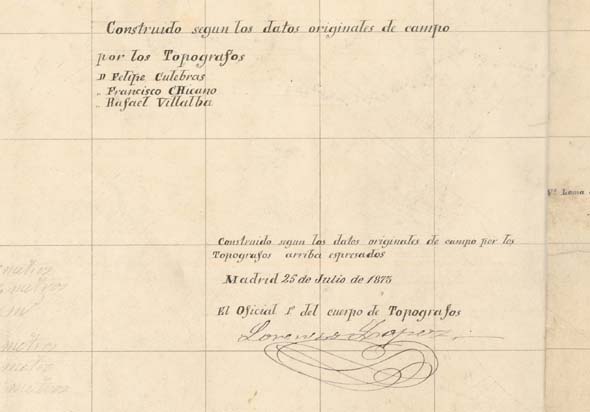 Construido segun los datos originales de campo
por los Topografos
D Felipe Culebras
„ Francisco CHicano
„ Rafael Villalba
Vª Loma
Construido segun los datos originales de campo por los
Topografos arriba espresados
Madrid 25 de Julio de 1875
El Oficial 1º del cuerpo de Topografos
Lorenzo Lopez
metros
metros
metros
metros